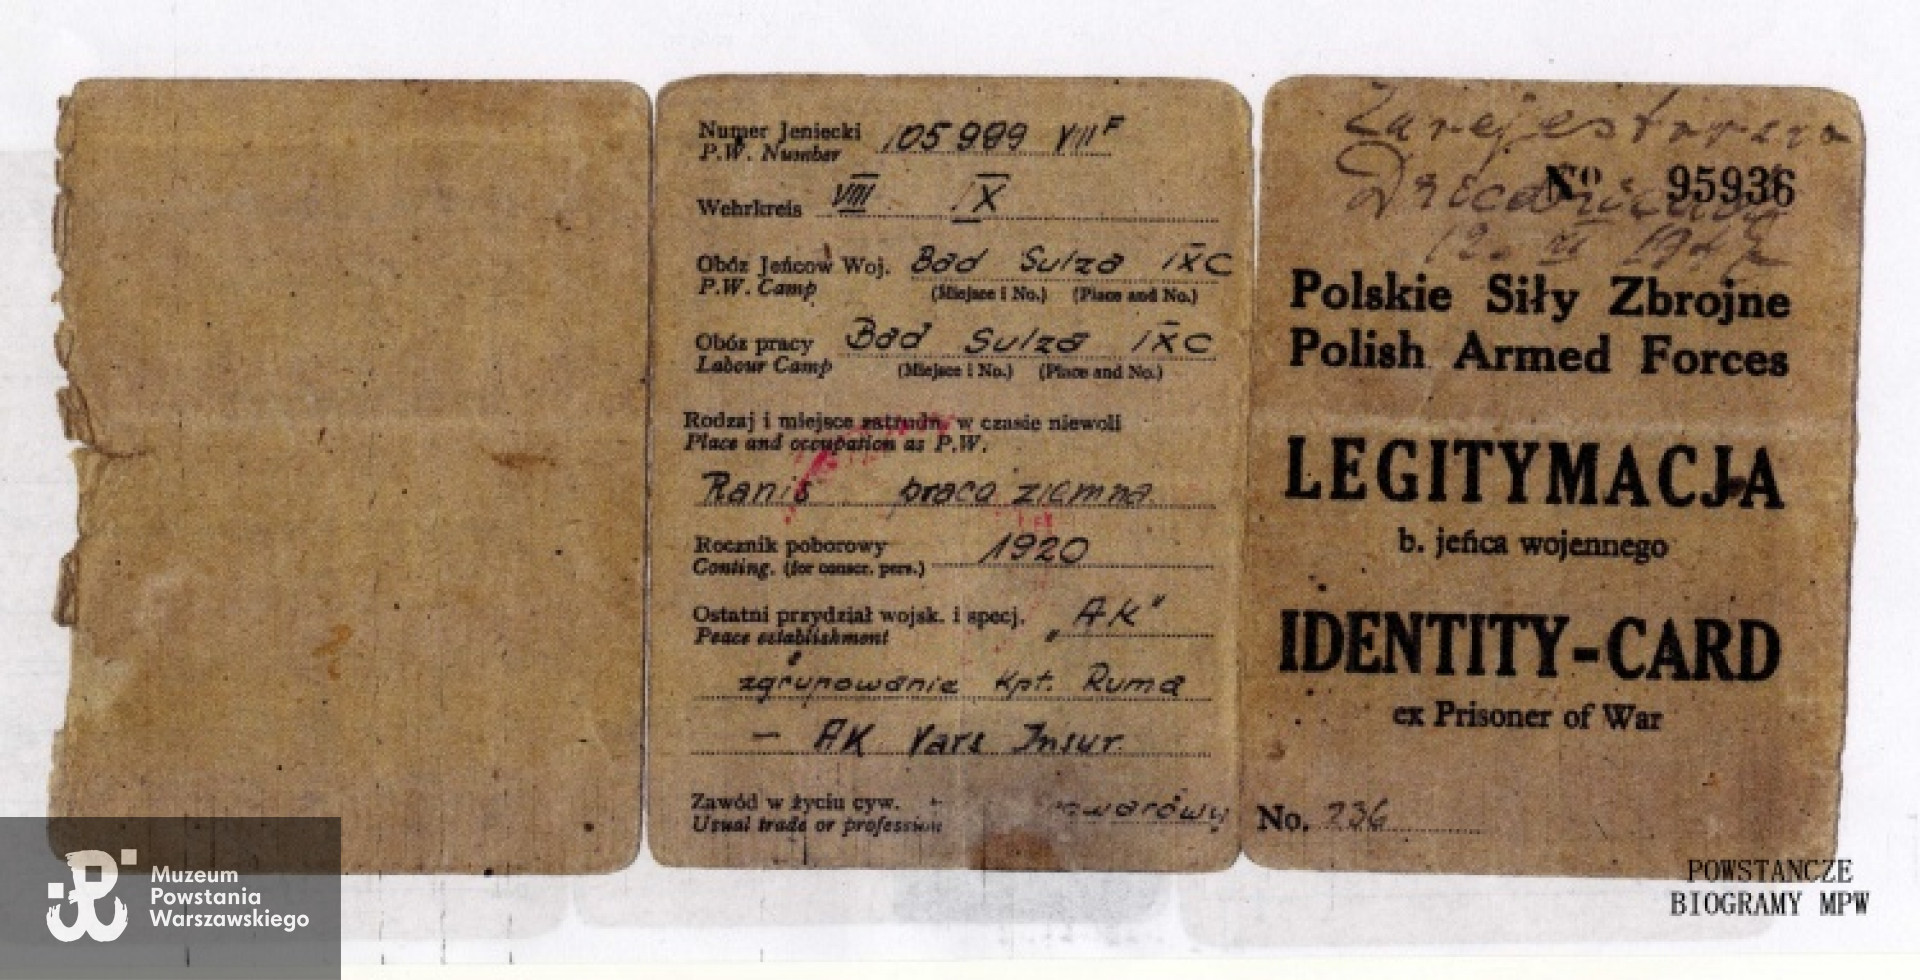 Numer Jeniecki 105989 VIII F
P.W. Number
Wehrkreis VIII IX
Obóz Jeńcow Woj. Bad Sulza IXC
P.W. Camp (Miejsce i No.) (Place and No.)
Obóz pracy Bad Sulza IXC
Labour Camp (Miejsce i No.) (Place and No.)
Rodzaj i miejsce zatrudn. w czasie niewoli
Place and occupation as P.W.
Ranis praca ziemna
Rocznik poborowy 1920
Conting. (for conscr. pers.)
Ostatni przydział wojsk. i specj. „AK"
Peace establishment
zgrupowanie Kpt. Ruma
— AK Vars Insur.
Zawód w życiu cyw.
Usual trade or profession
Zarejestrowano
No 95936
Polskie Siły Zbrojne
Polish Armed Forces
LEGITYMACJA
b. jeńca wojennego
IDENTITY-CARD
ex Prisoner of War
No. 236
Muzeum
Powstania
Warszawskiego
POWSTANCZE
BIOGRAMY MPW